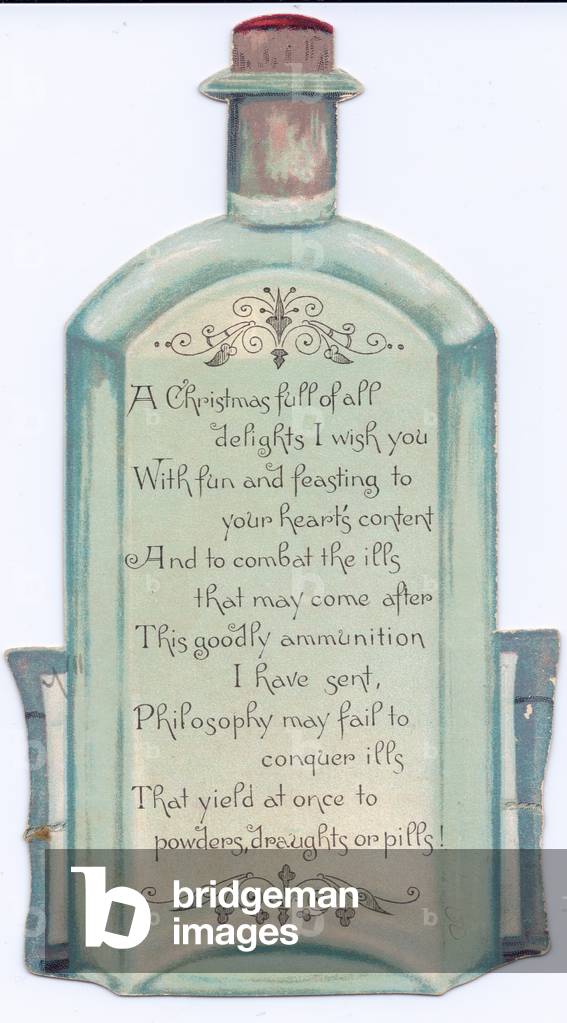 A Christmas full of all
delights I wish you
With fun and feasting to
your heart's content
And to combat the ills
that may come after
This goodly ammunition
I have sent,
Philosophy may fail to
conquer ills
That yield at once to
powders, draughts or pills!
b bridgeman
images